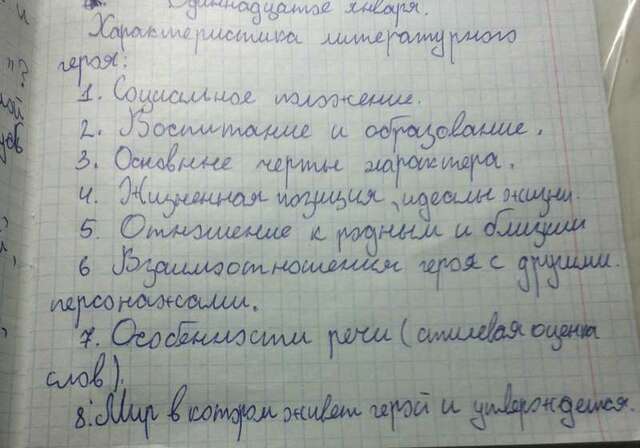 Одиннадцатое января.
Характеристика литературного
героя:
1. Социальное положение.
2. Воспитание и образование.
3. Основные черты характера.
4. Жизненная позиция, идеалы жизни.
5. Отношение к родным и близким
6 Взаимоотношения героя с другими
персонажами.
7. Особенности речи (стилевая оценка
слов).
8. Мир в котором живет герой и утверждется.